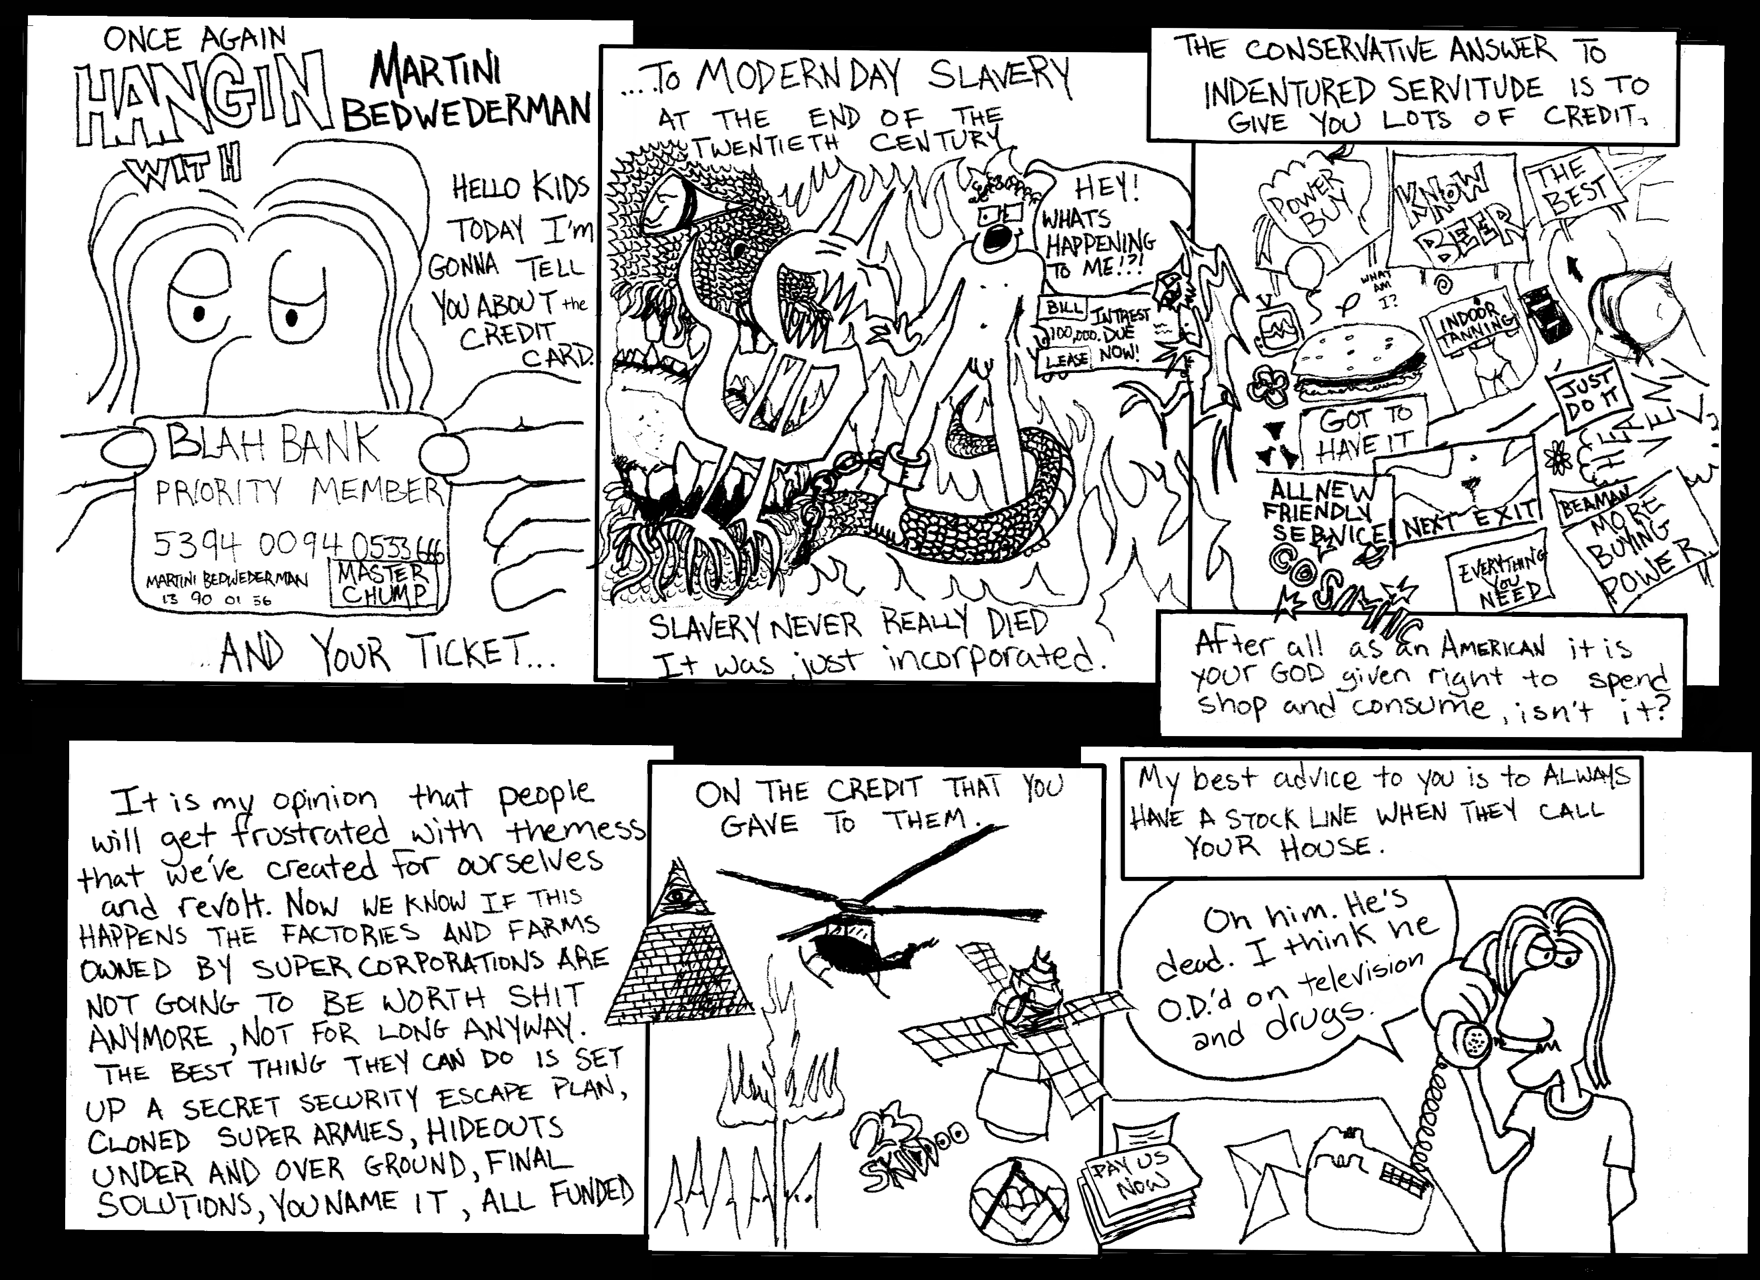 ONCE AGAIN
HANGIN
WITH
MARTINI
BEDWEDERMAN
HELLO KIDS
TODAY I'm
GONNA TELL
YOU ABOUT the
CREDIT
CARD.
BLAH BANK
PRIORITY MEMBER
5394 0094 0533666
MARTINI BEDWEDERMAN
13 90 01 56
MASTER
CHUMP
..AND YOUR TICKET...
....TO MODERN DAY SLAVERY
AT THE END OF THE
TWENTIETH CENTURY
HEY!
WHATS
HAPPENING
TO ME!?!
BILL
INTREST
100,000. DUE
LEASE
NOW!
SLAVERY NEVER REALLY DIED
It was just incorporated.
THE CONSERVATIVE ANSWER TO
INDENTURED SERVITUDE IS TO
GIVE YOU LOTS OF CREDIT.
POWER
BUY
KNOW
BEER
THE
BEST
WHAT
AM
I?
INDOOR
TANNING
JUST
DO IT
GOT TO
HAVE IT
ALL NEW
FRIENDLY
SERVICE!
NEXT EXIT
BEAMAN
MORE
BUYING
POWER
EVERYTHING
YOU
NEED
COSMIC
After all as an AMERICAN it is
your GOD given right to spend
shop and consume, isn't it?
It is my opinion that people
will get frustrated with themess
that we've created for ourselves
and revolt. NOW WE KNOW IF THIS
HAPPENS THE FACTORIES AND FARMS
OWNED BY SUPER CORPORATIONS ARE
NOT GOING TO BE WORTH SHIT
ANYMORE, NOT FOR LONG ANYWAY.
THE BEST THING THEY CAN DO IS SET
UP A SECRET SECURITY ESCAPE PLAN,
CLONED SUPER ARMIES, HIDEOUTS
UNDER AND OVER GROUND, FINAL
SOLUTIONS, YOU NAME IT, ALL FUNDED
ON THE CREDIT THAT YOU
GAVE TO THEM.
23
SKIDOO
My best advice to you is to ALWAYS
HAVE A STOCK LINE WHEN THEY CALL
YOUR HOUSE.
Oh him. He's
dead. I think he
O.D.'d on television
and drugs.
PAY US
NOW